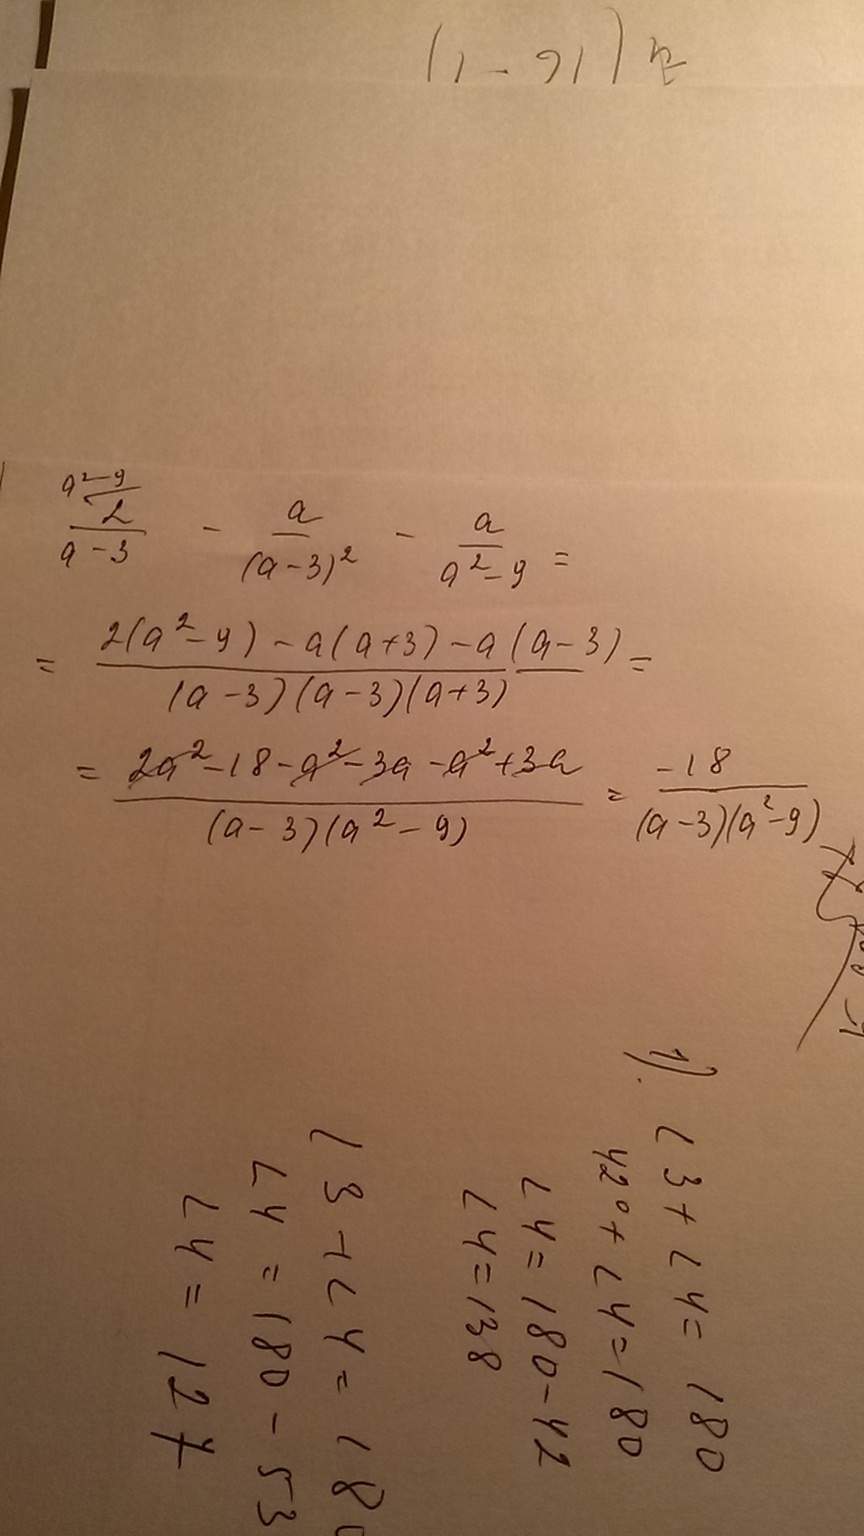 (1-91)
a²-9
2
a-3 - a/(a-3)² - a/(a²-9) =
= (2(a²-9)-a(a+3)-a(a-3))/((a-3)(a-3)(a+3)) =
= (2a²-18-a²-3a-a²+3a)/((a-3)(a²-9)) = -18/((a-3)(a²-9))
1).
∠3+∠4= 180
42°+∠4=180
∠4=180-42
∠4=138
∠3+∠4=180
∠4=180-53
∠4=127